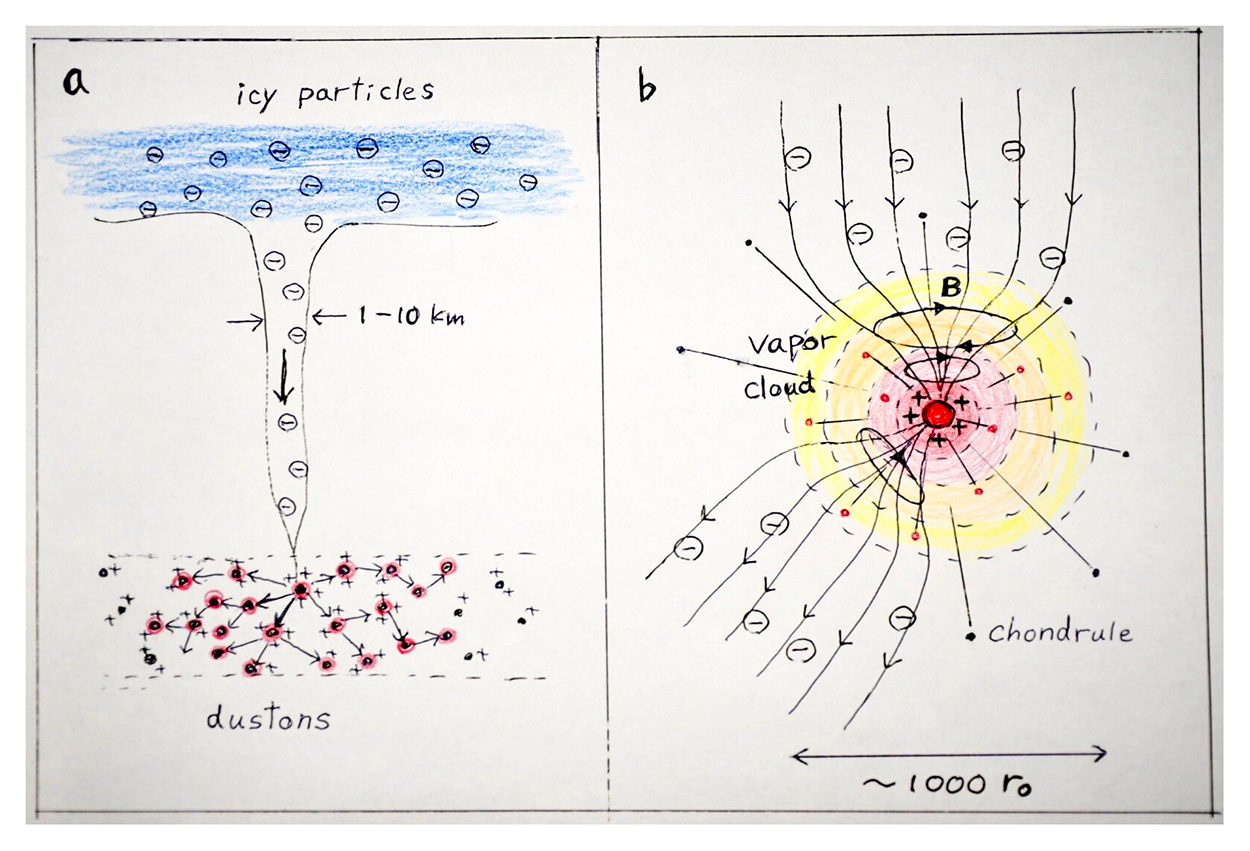 a
icy particles
1-10 km
dustons
b
B
vapor
cloud
chondrule
~1000 r₀